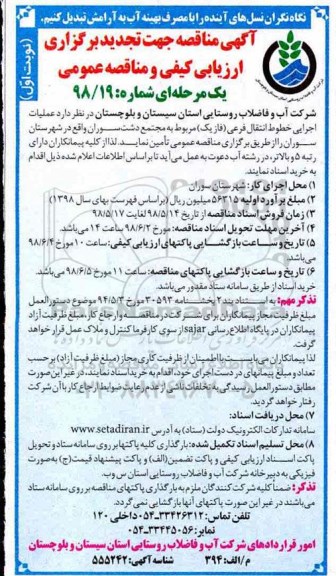 نگاه نگران نسل‌های آینده را با مصرف بهینه آب به آرامش تبدیل کنیم.
آگهی مناقصه جهت تجدید برگزاری
ارزیابی کیفی و مناقصه عمومی
یک مرحله‌ای شماره: ۹۸/۱۹
(نوبت اول)
شرکت آب و فاضلاب روستایی استان سیستان و بلوچستان در نظر دارد عملیات
اجرایی خطوط انتقال فرعی (فاز یک) مربوط به مجتمع دشت سوران واقع در شهرستان
سوران را از طریق برگزاری مناقصه عمومی تأمین نماید. لذا از کلیه پیمانکاران دارای
رتبه ۵ و بالاتر، در رشته آب دعوت به عمل می‌آید تا بر اساس اطلاعات اعلام شده ذیل اقدام
به خرید اسناد نمایند.
۱) محل اجرای کار: شهرستان سوران
۲) مبلغ برآورد اولیه: ۵۶۲۱۵ میلیون ریال (براساس فهرست بهای سال ۱۳۹۸)
۳) زمان فروش اسناد مناقصه: از تاریخ ۹۸/۵/۱۴ لغایت ۹۸/۵/۱۷
۴) آخرین مهلت تحویل اسناد مناقصه: مورخ ۹۸/۶/۲ ساعت ۱۴ می‌باشد.
۵) تاریخ و ساعت بازگشایی پاکتهای ارزیابی کیفی: ساعت ۱۰ مورخ ۹۸/۶/۴
می‌باشد.
۶) تاریخ و ساعت بازگشایی پاکتهای مناقصه: ساعت ۱۱ مورخ ۹۸/۶/۵ می‌باشد.
خرید اسناد از طریق سامانه ستاد مقدور می‌باشد.
تذکر مهم: به استناد بند ۲ بخشنامه ۳۰۵۹۳ مورخ ۹۴/۵/۳ موضوع دستورالعمل
مبلغ ظرفیت مجاز پیمانکاران برای شرکت در مناقصه و ارجاع کار، مبلغ ظرفیت آزاد
پیمانکاران در پایگاه اطلاع رسانی sajar از سوی کارفرما کنترل و ملاک عمل قرار خواهد
گرفت.
لذا پیمانکاران می‌بایست با اطمینان از ظرفیت کاری مجاز (مبلغ ظرفیت آزاد) برحسب
تعداد و مبلغ پیمانهای در دست اجرای خود، اقدام به خرید اسناد نمایند، در غیر این صورت
مطابق دستورالعمل رسیدگی به تخلفات ناشی از عدم رعایت ضوابط ارجاع کار با آن شرکت
رفتار خواهد گردید.
۷) محل دریافت اسناد:
سامانه تدارکات الکترونیک دولت (ستاد) به آدرس www.setadiran.ir
۸) محل تسلیم اسناد تکمیل شده: بارگذاری کلیه پاکتها بر روی سامانه ستاد و تحویل
پاکت اسناد ارزیابی کیفی و پاکت تضمین (الف) و پاکت پیشنهاد قیمت (ج) به صورت
فیزیکی به دبیرخانه شرکت آب و فاضلاب روستایی استان س و ب.
تذکر: ضمناً کلیه شرکت کنندگان ملزم به بارگذاری پاکتهای مناقصه بر روی سامانه ستاد
می‌باشند در غیر این صورت پاکتهای آنها بازگشایی نمی‌گردد.
تلفن تماس: ۳۳۴۲۶۳۱۲-۰۵۴ داخلی ۱۲۰
نمابر: ۳۳۴۲۵۰۵۶-۰۵۴
امور قراردادهای شرکت آب و فاضلاب روستایی استان سیستان و بلوچستان
م/الف: ۳۹۴
شناسه آگهی: ۵۵۵۲۴۲